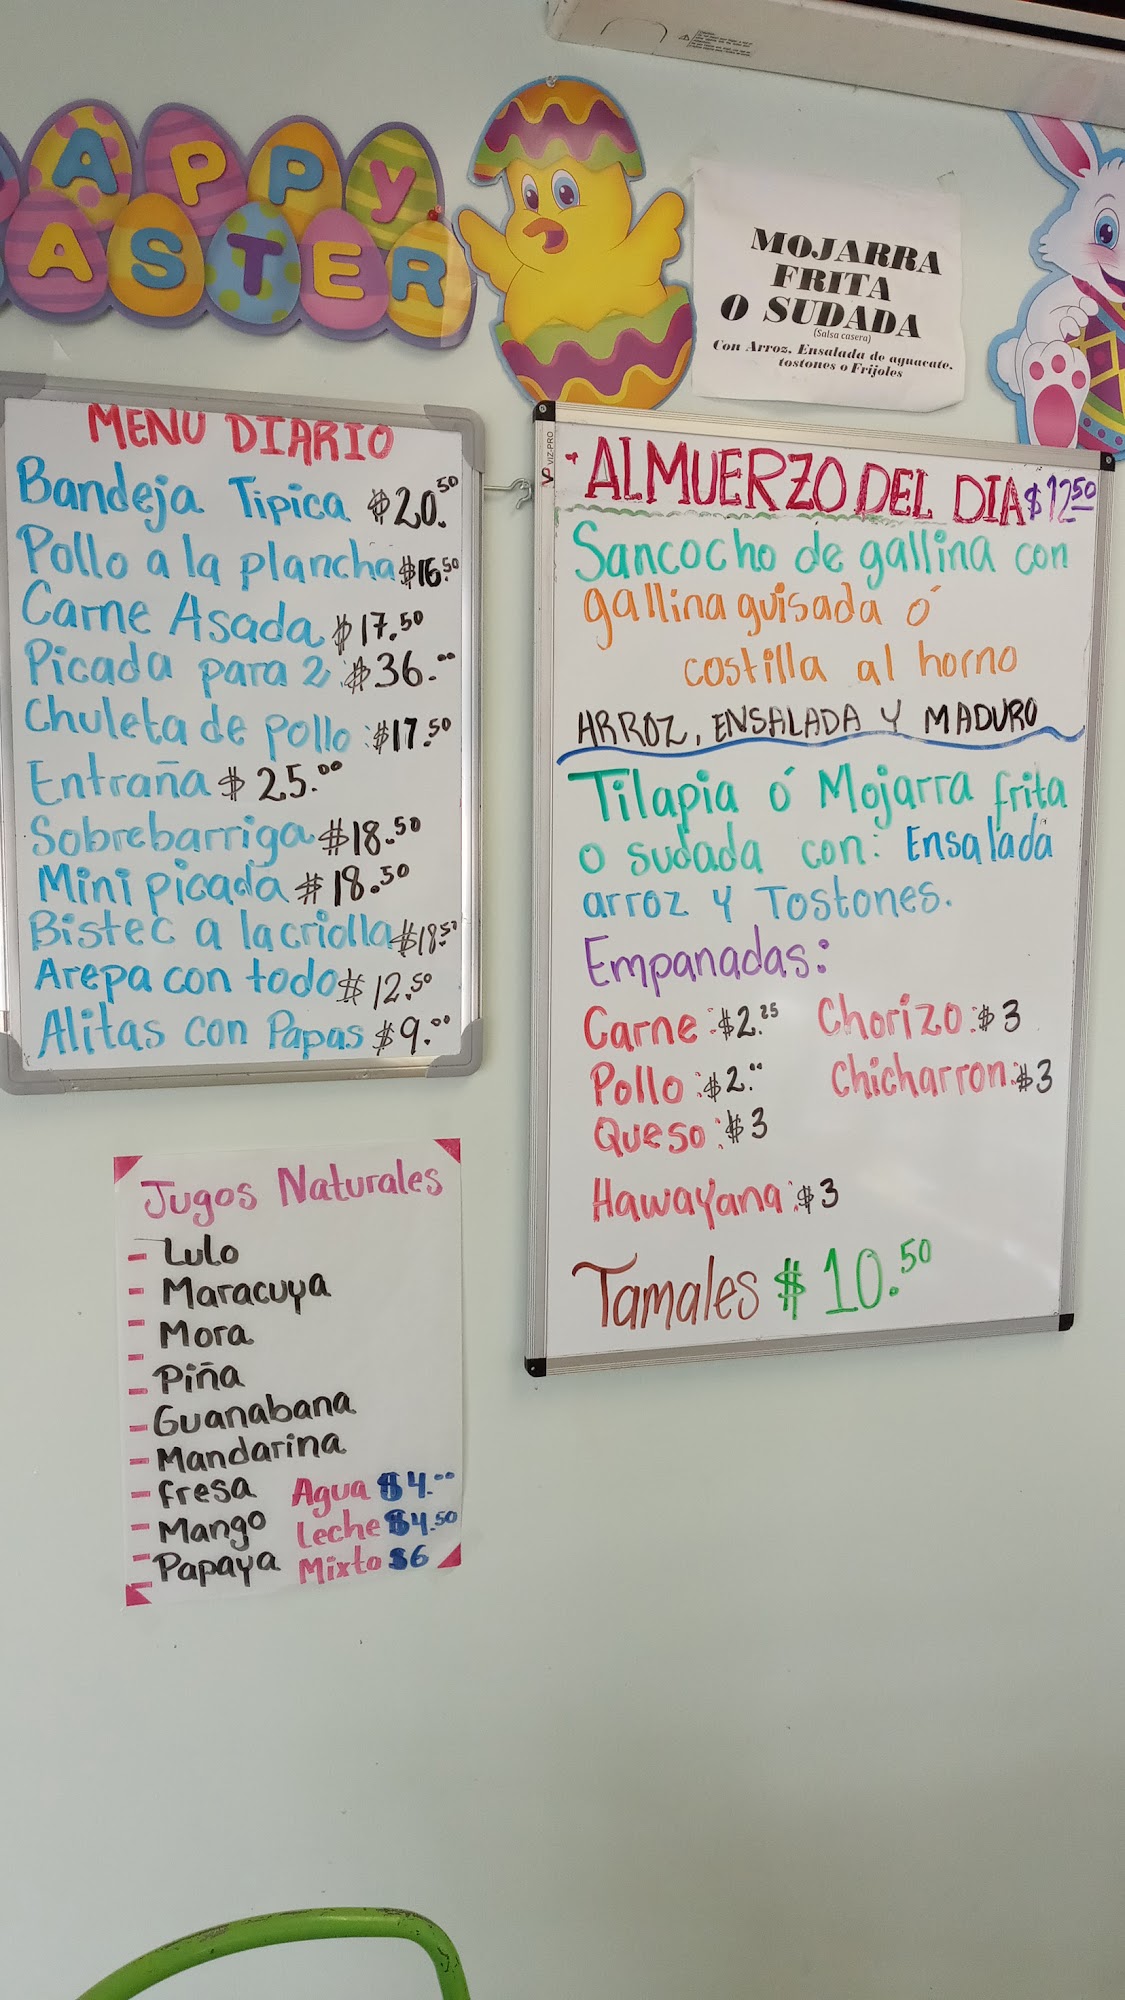 HAPPY
EASTER
MOJARRA
FRITA
O SUDADA
(Salsa casera)
Con Arroz, Ensalada de aguacate,
tostones o Frijoles
MENU DIARIO
Bandeja Tipica $20.50
Pollo a la plancha $16.50
Carne Asada $17.50
Picada para 2: $36.00
Chuleta de pollo: $17.50
Entraña $25.00
Sobrebarriga $18.50
Mini picada $18.50
Bistec a la criolla $18.50
Arepa con todo $12.50
Alitas con Papas $9.00
VIZ-PRO
ALMUERZO DEL DIA $12.50
Sancocho de gallina con
gallina guisada ó
costilla al horno
ARROZ, ENSALADA Y MADURO
Tilapia ó Mojarra frita
o sudada con: Ensalada
arroz y Tostones.
Empanadas:
Carne: $2.25 Chorizo: $3
Pollo: $2.00 Chicharron: $3
Queso: $3
Hawayana: $3
Tamales $10.50
Jugos Naturales
- Lulo
- Maracuya
- Mora
- Piña
- Guanabana
- Mandarina
- fresa Agua $4.00
- Mango Leche $4.50
- Papaya Mixto $6